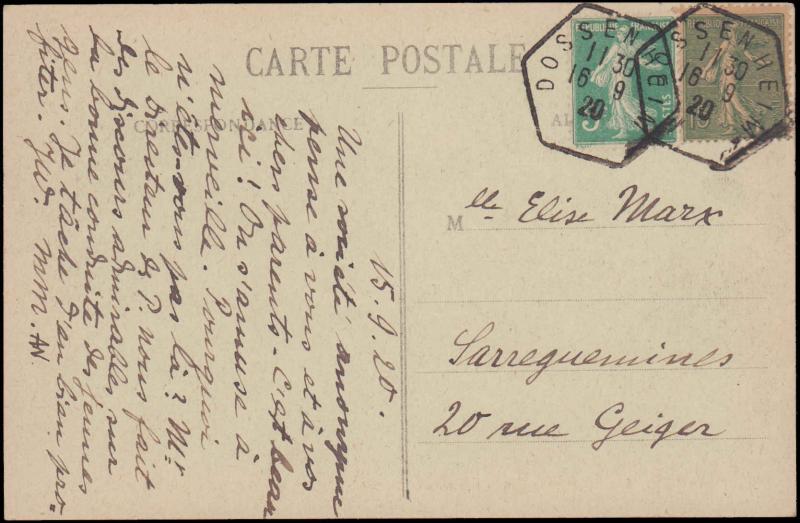 CARTE POSTALE
CORRESPONDANCE
15.9.20.
Une société anonyme
pense à vous et à vos
chers parents. C'est beau
ici! On s'amuse à
merveille. Pourquoi
n'êtes-vous pas là? Mr
le Directeur de P. nous fait
des discours admirables sur
la bonne conduite des jeunes
gens. Je tâche d'en bien pro-
fiter. JW. MM. AW.
RÉPUBLIQUE FRANÇAISE
DOSSENHEIM
11 30
16 9
20
DOSSENHEIM
11 30
16 9
20
Mlle Elise Marx
Sarreguemines
20 rue Geiger